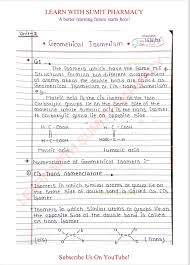 LEARN WITH SUMIT PHARMACY
A better learning future starts here!
Unit-2
* Geometrical Isomerism *
* GI :-
The Isomers which have the Same M.F &
Structural formula but different arrangement
of atoms about the double bond are called as
Geometrical Isomerism or Cis-trans Isomerism
Maleic acid is the cis isomer
Carboxylic groups lie on the Same side of
molecule while fumaric acid is trans isomer
carboxylic groups lie on the opposite
H-C-COOH
H-C-COOH
H-C-COOH
* Nomenclature of Geometrical Isomers :-
Cis-Trans Nomenclature
Isomers in which similar atoms or groups lie on
the Same Side of double bond is called as Cis
Isomer.
Isomers in which Similar atoms or groups lie on
the opposite side of the double bond is called
as trans Isomer.
(cis)
(trans)
Subscribe Us On YouTube!